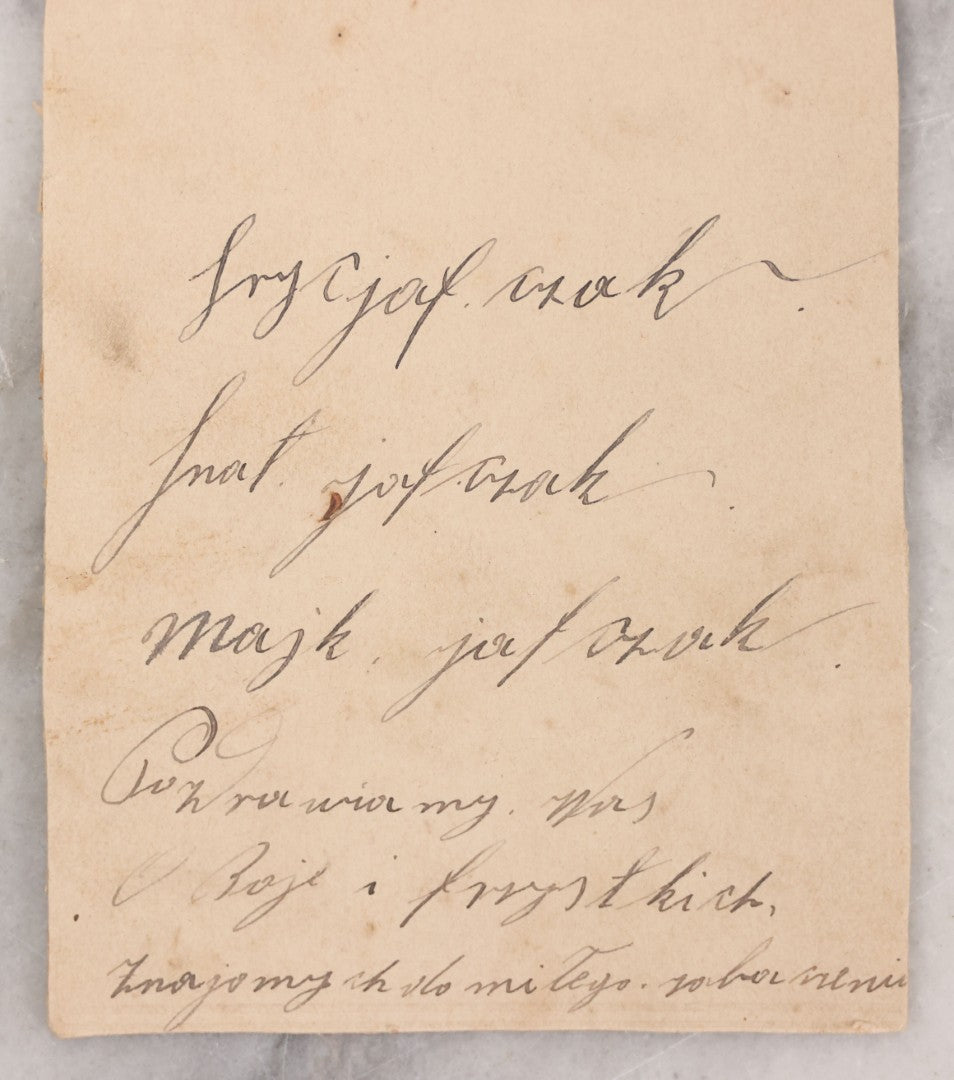 hryc jaf. czak
hnat. jaf czak
Majk. jaf czak
Pozdrawiamy. Was
O Boje i fszystkich,
Znajomych do miłego. zobaczenia